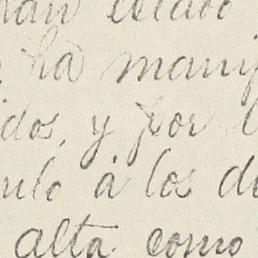 han estado
ha manif
idos, y por l
nulo á los de
alta como